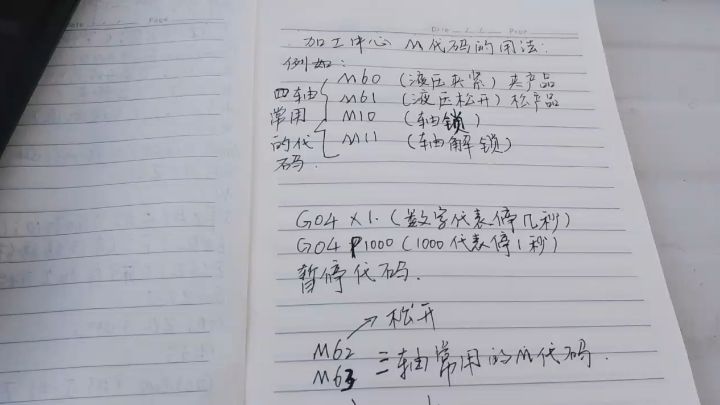 Date / / Page
加工中心 M代码的用法:
例如:
四轴常用的代码.
M60 (液压夹紧) 夹产品
M61 (液压松开) 松产品
M10 (轴锁)
M11 (轴解锁)
G04 X1. (数字代表停几秒)
G04 P1000 (1000代表停1秒)
暂停代码.
松开
M62
M63
三轴常用的M代码.